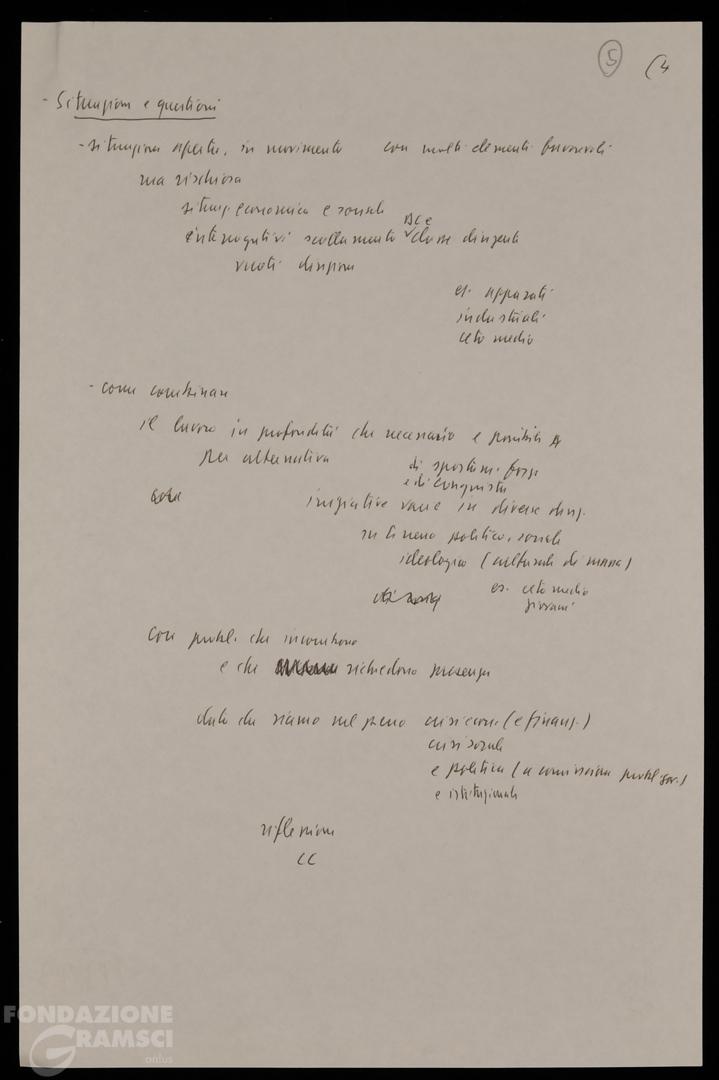 5 (4
- Situazione e questioni
- situazione aperta, in movimento con molti elementi favorevoli
ma rischiosa
situaz economica e sociale
interrogativi scollamento DC e classe dirigente
vicoli
es. apparati
industriali
ceto medio
- come combinare
il lavoro in profondità che necessario e possibile
per alternativa di spostam. forze
e di conquista
iniziative varie in diverse direz.
su terreno politico, sociale
ideologico (culturale di massa)
es. ceto medio
giovani
con probl. che incombono
e che richiedono presenza
dato che siamo nel pieno crisi econ. (e finanz.)
crisi sociale
e politica (a cominciare probl gov.)
e istituzionale
riflessione
CC
FONDAZIONE
GRAMSCI
onlus